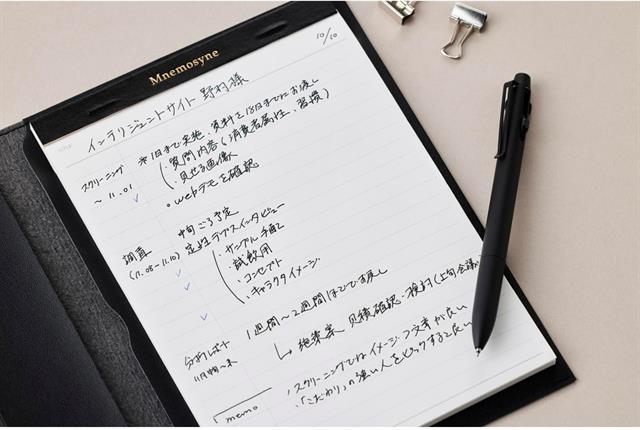 Mnemosyne
10/10
インテリジェントサイト 野村様
スクリーニング
〜11.01
※1日まで実施、資料を18日までにお渡し
・質問内容(消費者属性、習慣)
・見せる画像
・webデモを確認
調査
(11.08-11.10)
中旬ごろ予定
定性デプスインタビュー
・サンプル手配
試飲用
・コンセプト
・キャラクタイメージ
分析レポート
11月中旬〜末
1週間〜2週間ほどでお戻し
↳施策案 見積確認・検討(上旬会議
memo
・スクリーニングではイメージ→文章が良い
・「こだわり」の強い人をピックすると良い